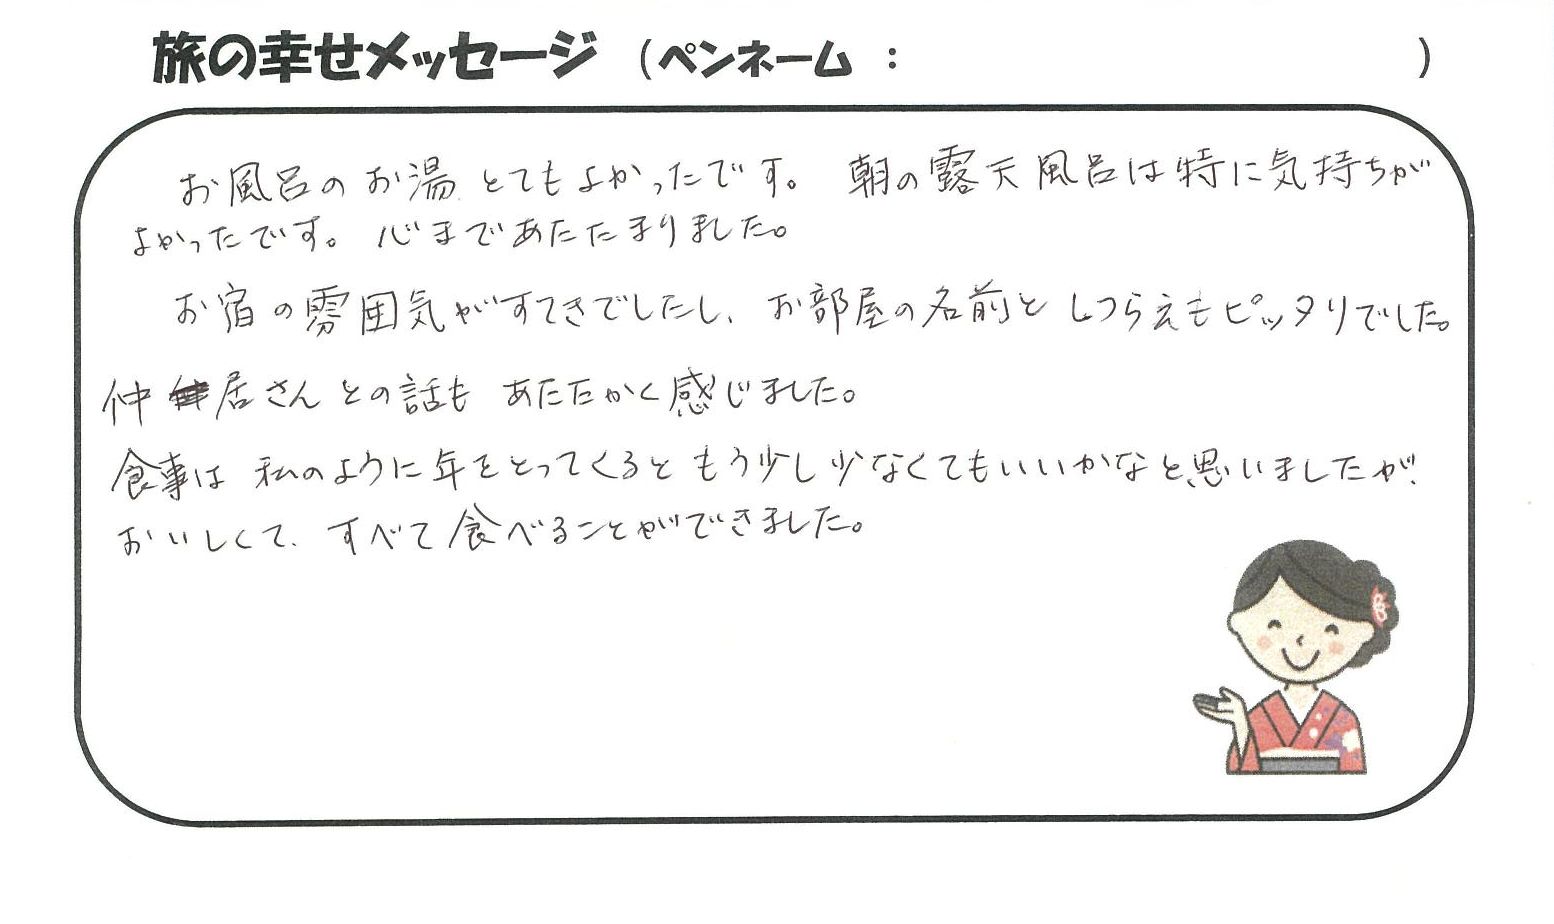 旅の幸せメッセージ (ペンネーム : )
お風呂のお湯とてもよかったです。 朝の露天風呂は特に気持ちが
よかったです。 心まであたたまりました。
お宿の雰囲気がすてきでしたし、お部屋の名前としつらえもピッタリでした。
仲居さんとの話も あたたかく感じました。
食事は 私のように年をとってくると もう少し少なくてもいいかなと思いましたが、
おいしくて、すべて食べることができました。